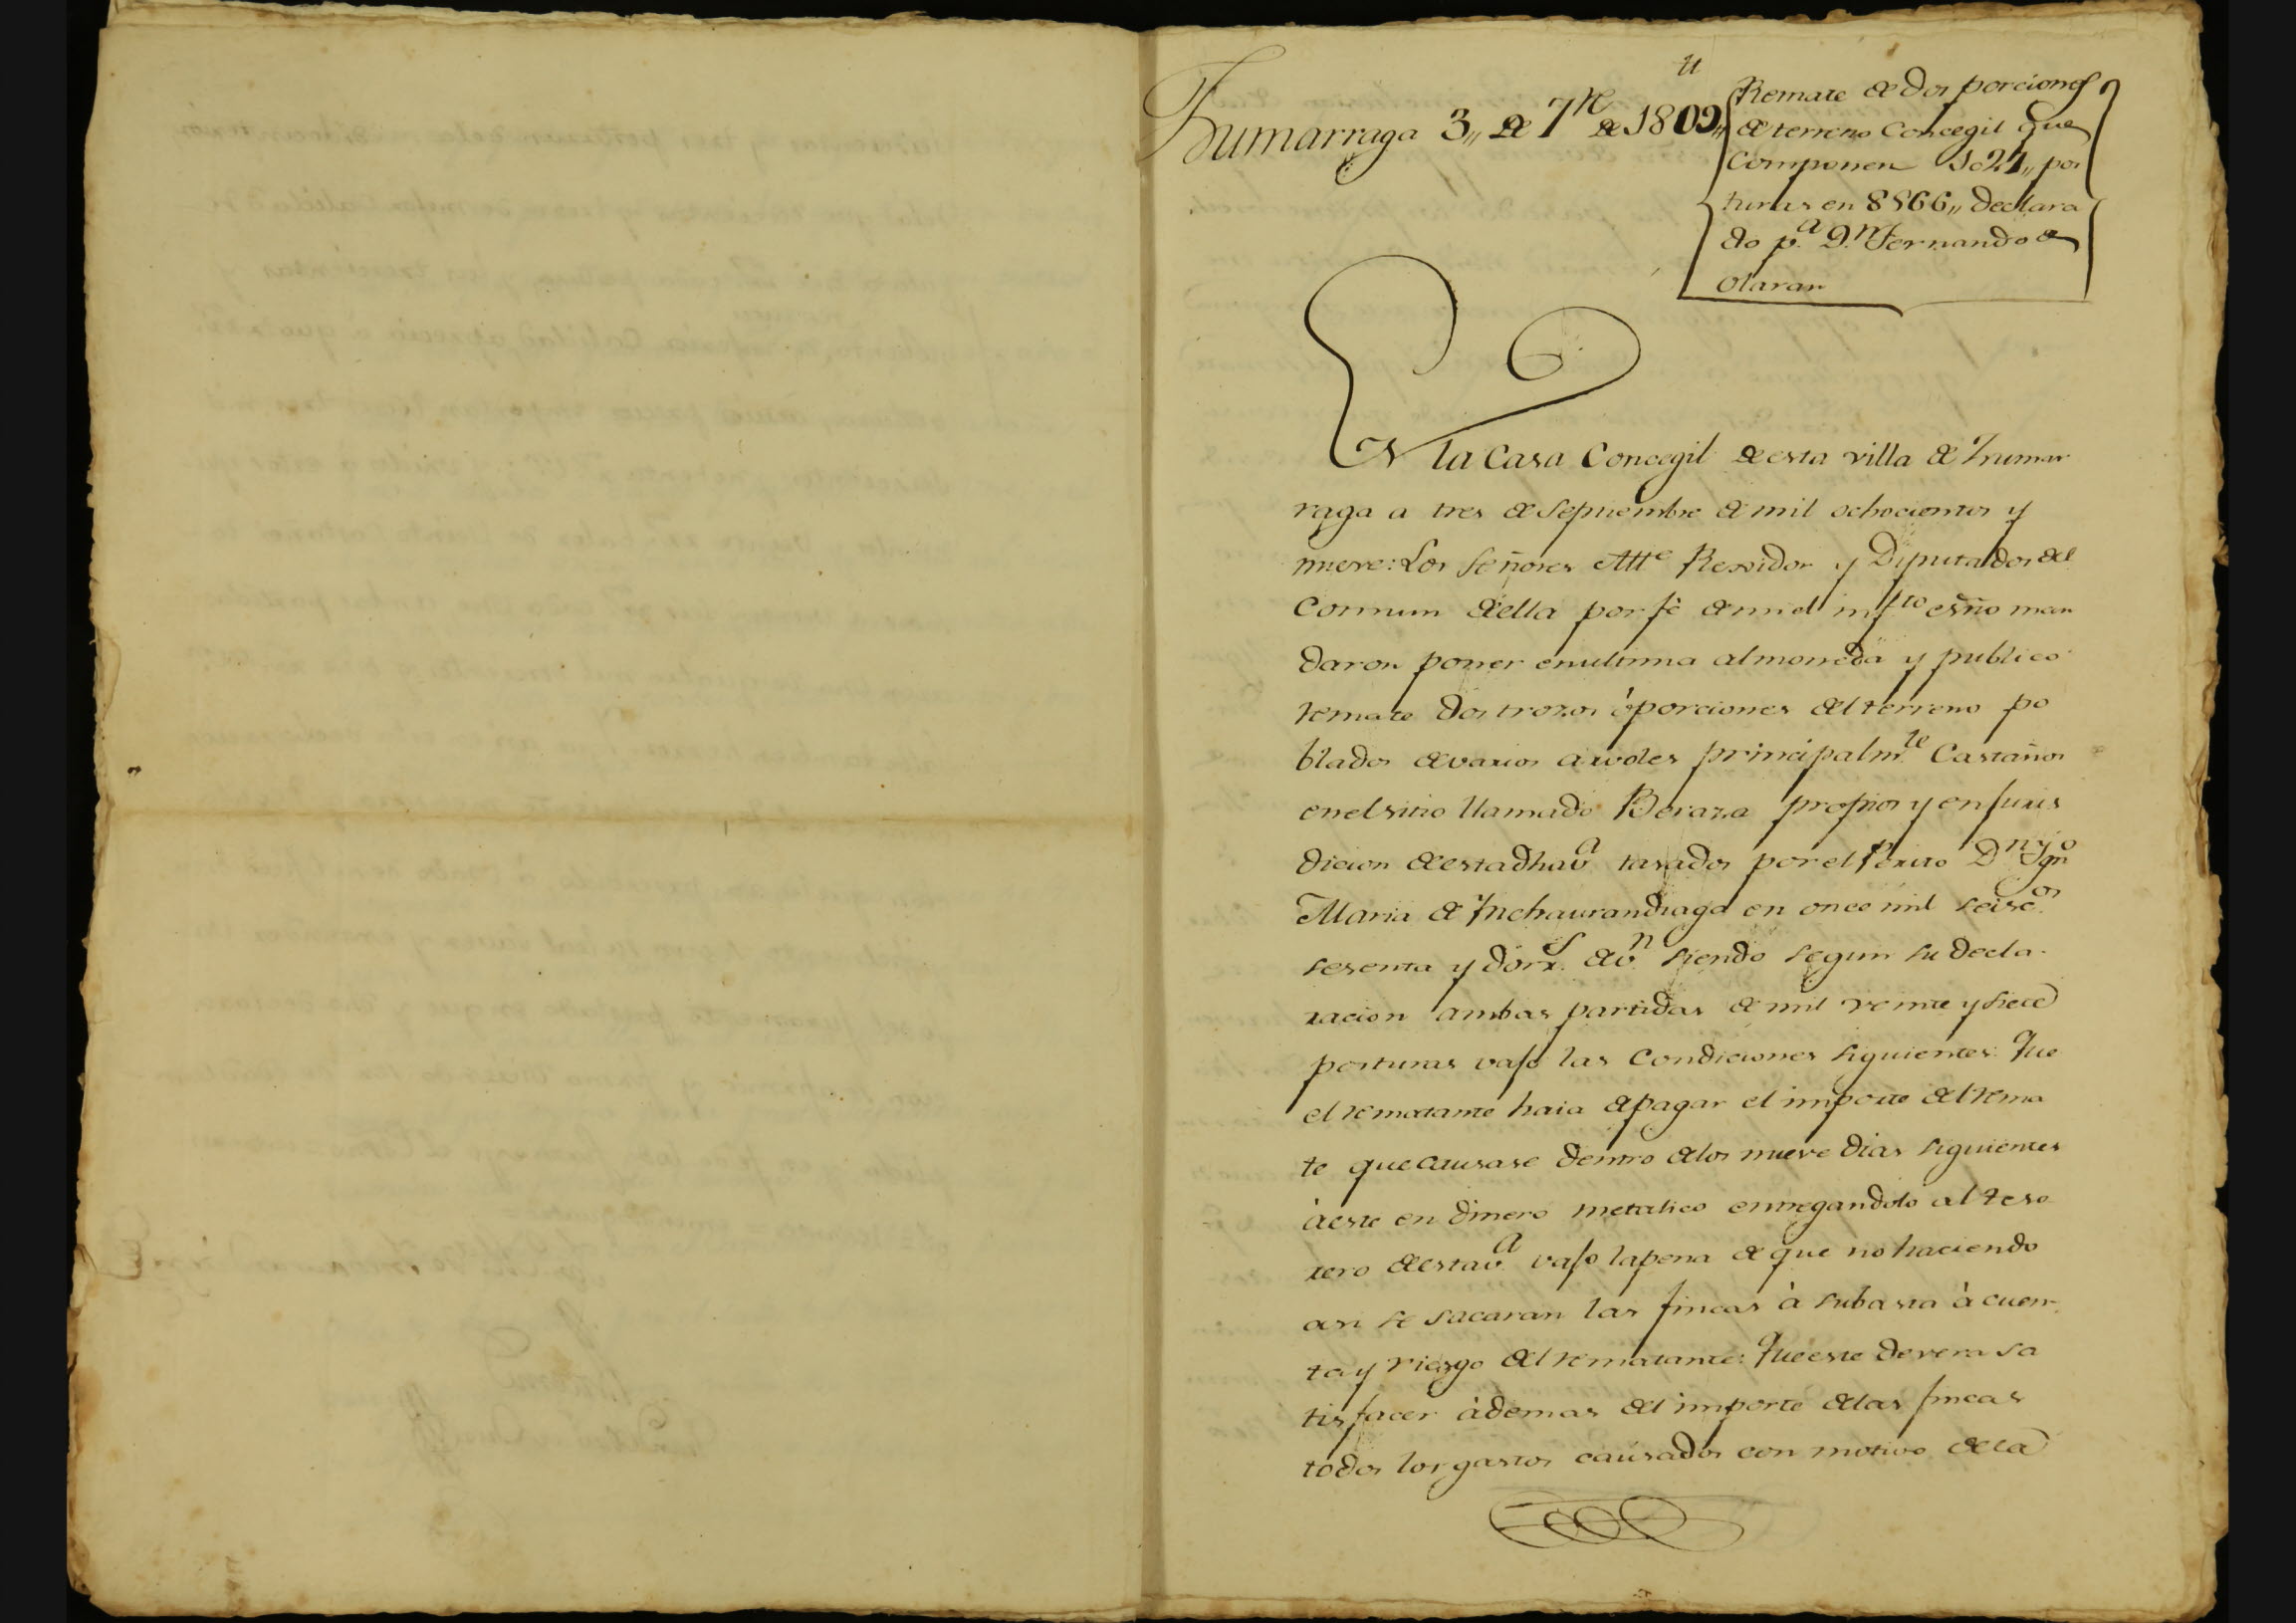 Zumarraga 3,, de 7re de 1809,,
Remate de dos porciones
de terreno Concegil que
Componen 1027,, pos
turas en 8866,, declara
do pa. Dn. Fernando de
Olaran
En la Casa Concegil de esta villa de Zumar
raga a tres de Septiembre de mil ochocientos y
nueve: Los señores Alle Rexidor y Diputados del
Comun de ella por fè de mi el infto esño man
daron poner en ultima almoneda y publico
remate dos trozos ò porciones del terreno po
blados de varios arvoles principalmte Castaños
en el sitio llamado Beraza propios y en juris
dicion de esta dha va tasados por el Perito Dn Ygno
Maria de Ynchaurandiaga en once mil seiscos
sesenta y dos rs. de vn siendo segun su decla
racion ambas partidas de mil veinte y siete
posturas vajo las Condiciones siguientes: Que
el rematante haia de pagar el importe del rema
te que causase dentro de los nueve dias siguientes
à este en dinero metalico entregandolo al teso
rero de esta va. vajo la pena de que no haciendo
asi se sacaran las fincas à subasta à cuen
ta y riesgo del rematante: Que este devera sa
tisfacer àdemas del importe de las fincas
todos los gastos causados con motivo de la